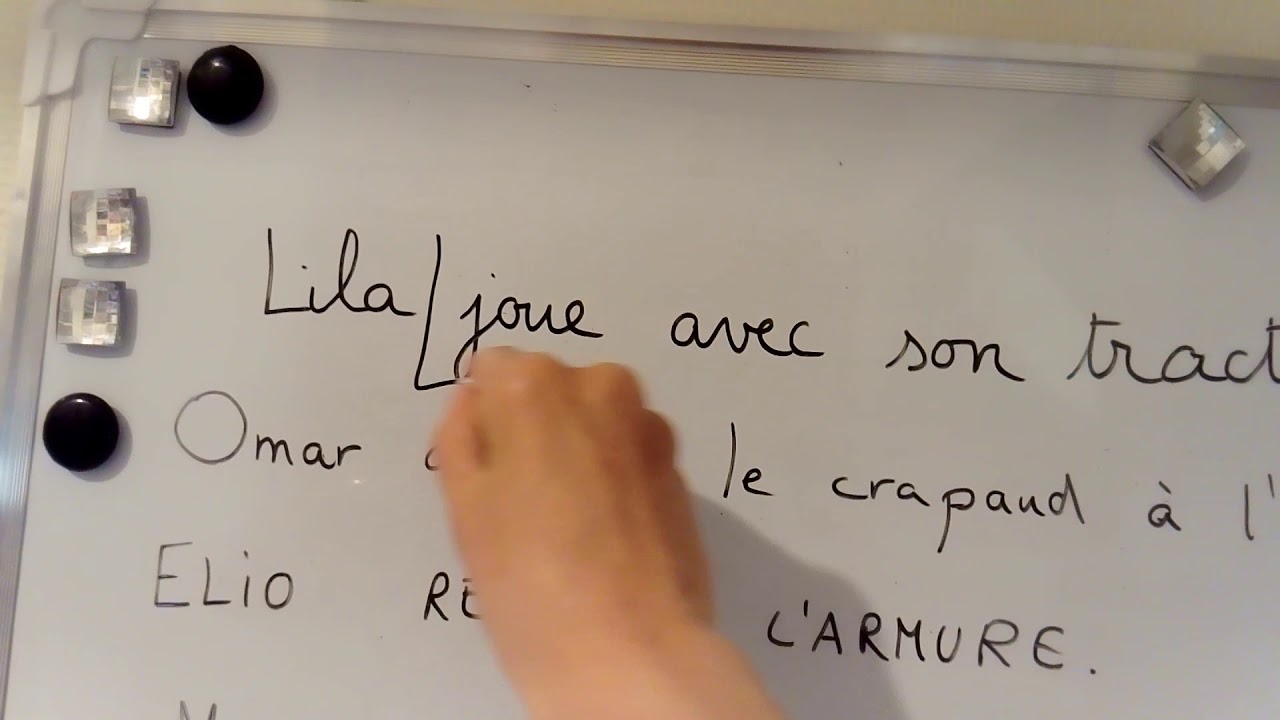 Lila joue avec son tract
Omar le crapaud à l'
ELiO RE L'ARMURE.